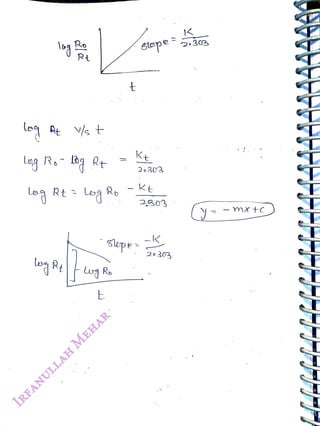 log Ro/Rt
slope = K/2.303
t
log Rt v/s t
log Ro - log Rt = Kt/2.303
log Rt = log Ro - Kt/2.303
y = -mx+c
slope = -K/2.303
log Rt
log Ro
t
IRFANULLAH MEHAR